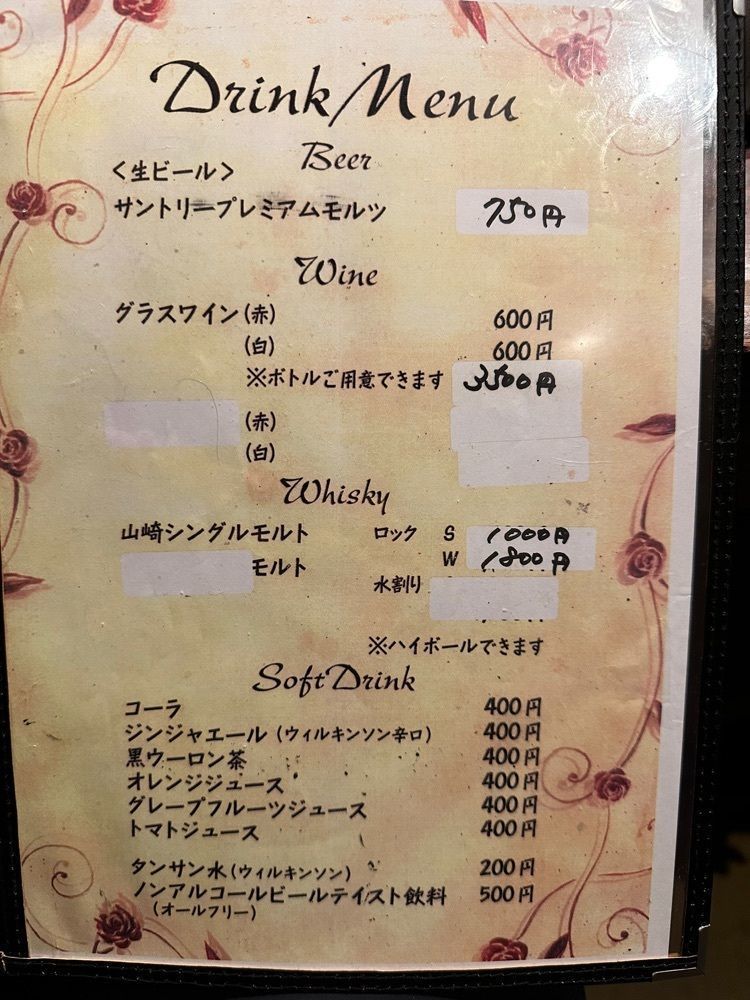 Drink Menu
Beer
<生ビール>
サントリープレミアムモルツ 750円
Wine
グラスワイン(赤) 600円
(白) 600円
※ボトルご用意できます 3500円
(赤)
(白)
Whisky
山崎シングルモルト ロック S 1000円
モルト W 1800円
水割り
※ハイボールできます
Soft Drink
コーラ 400円
ジンジャエール(ウィルキンソン辛口) 400円
黒ウーロン茶 400円
オレンジジュース 400円
グレープフルーツジュース 400円
トマトジュース 400円
タンサン水(ウィルキンソン) 200円
ノンアルコールビールテイスト飲料 500円
(オールフリー)